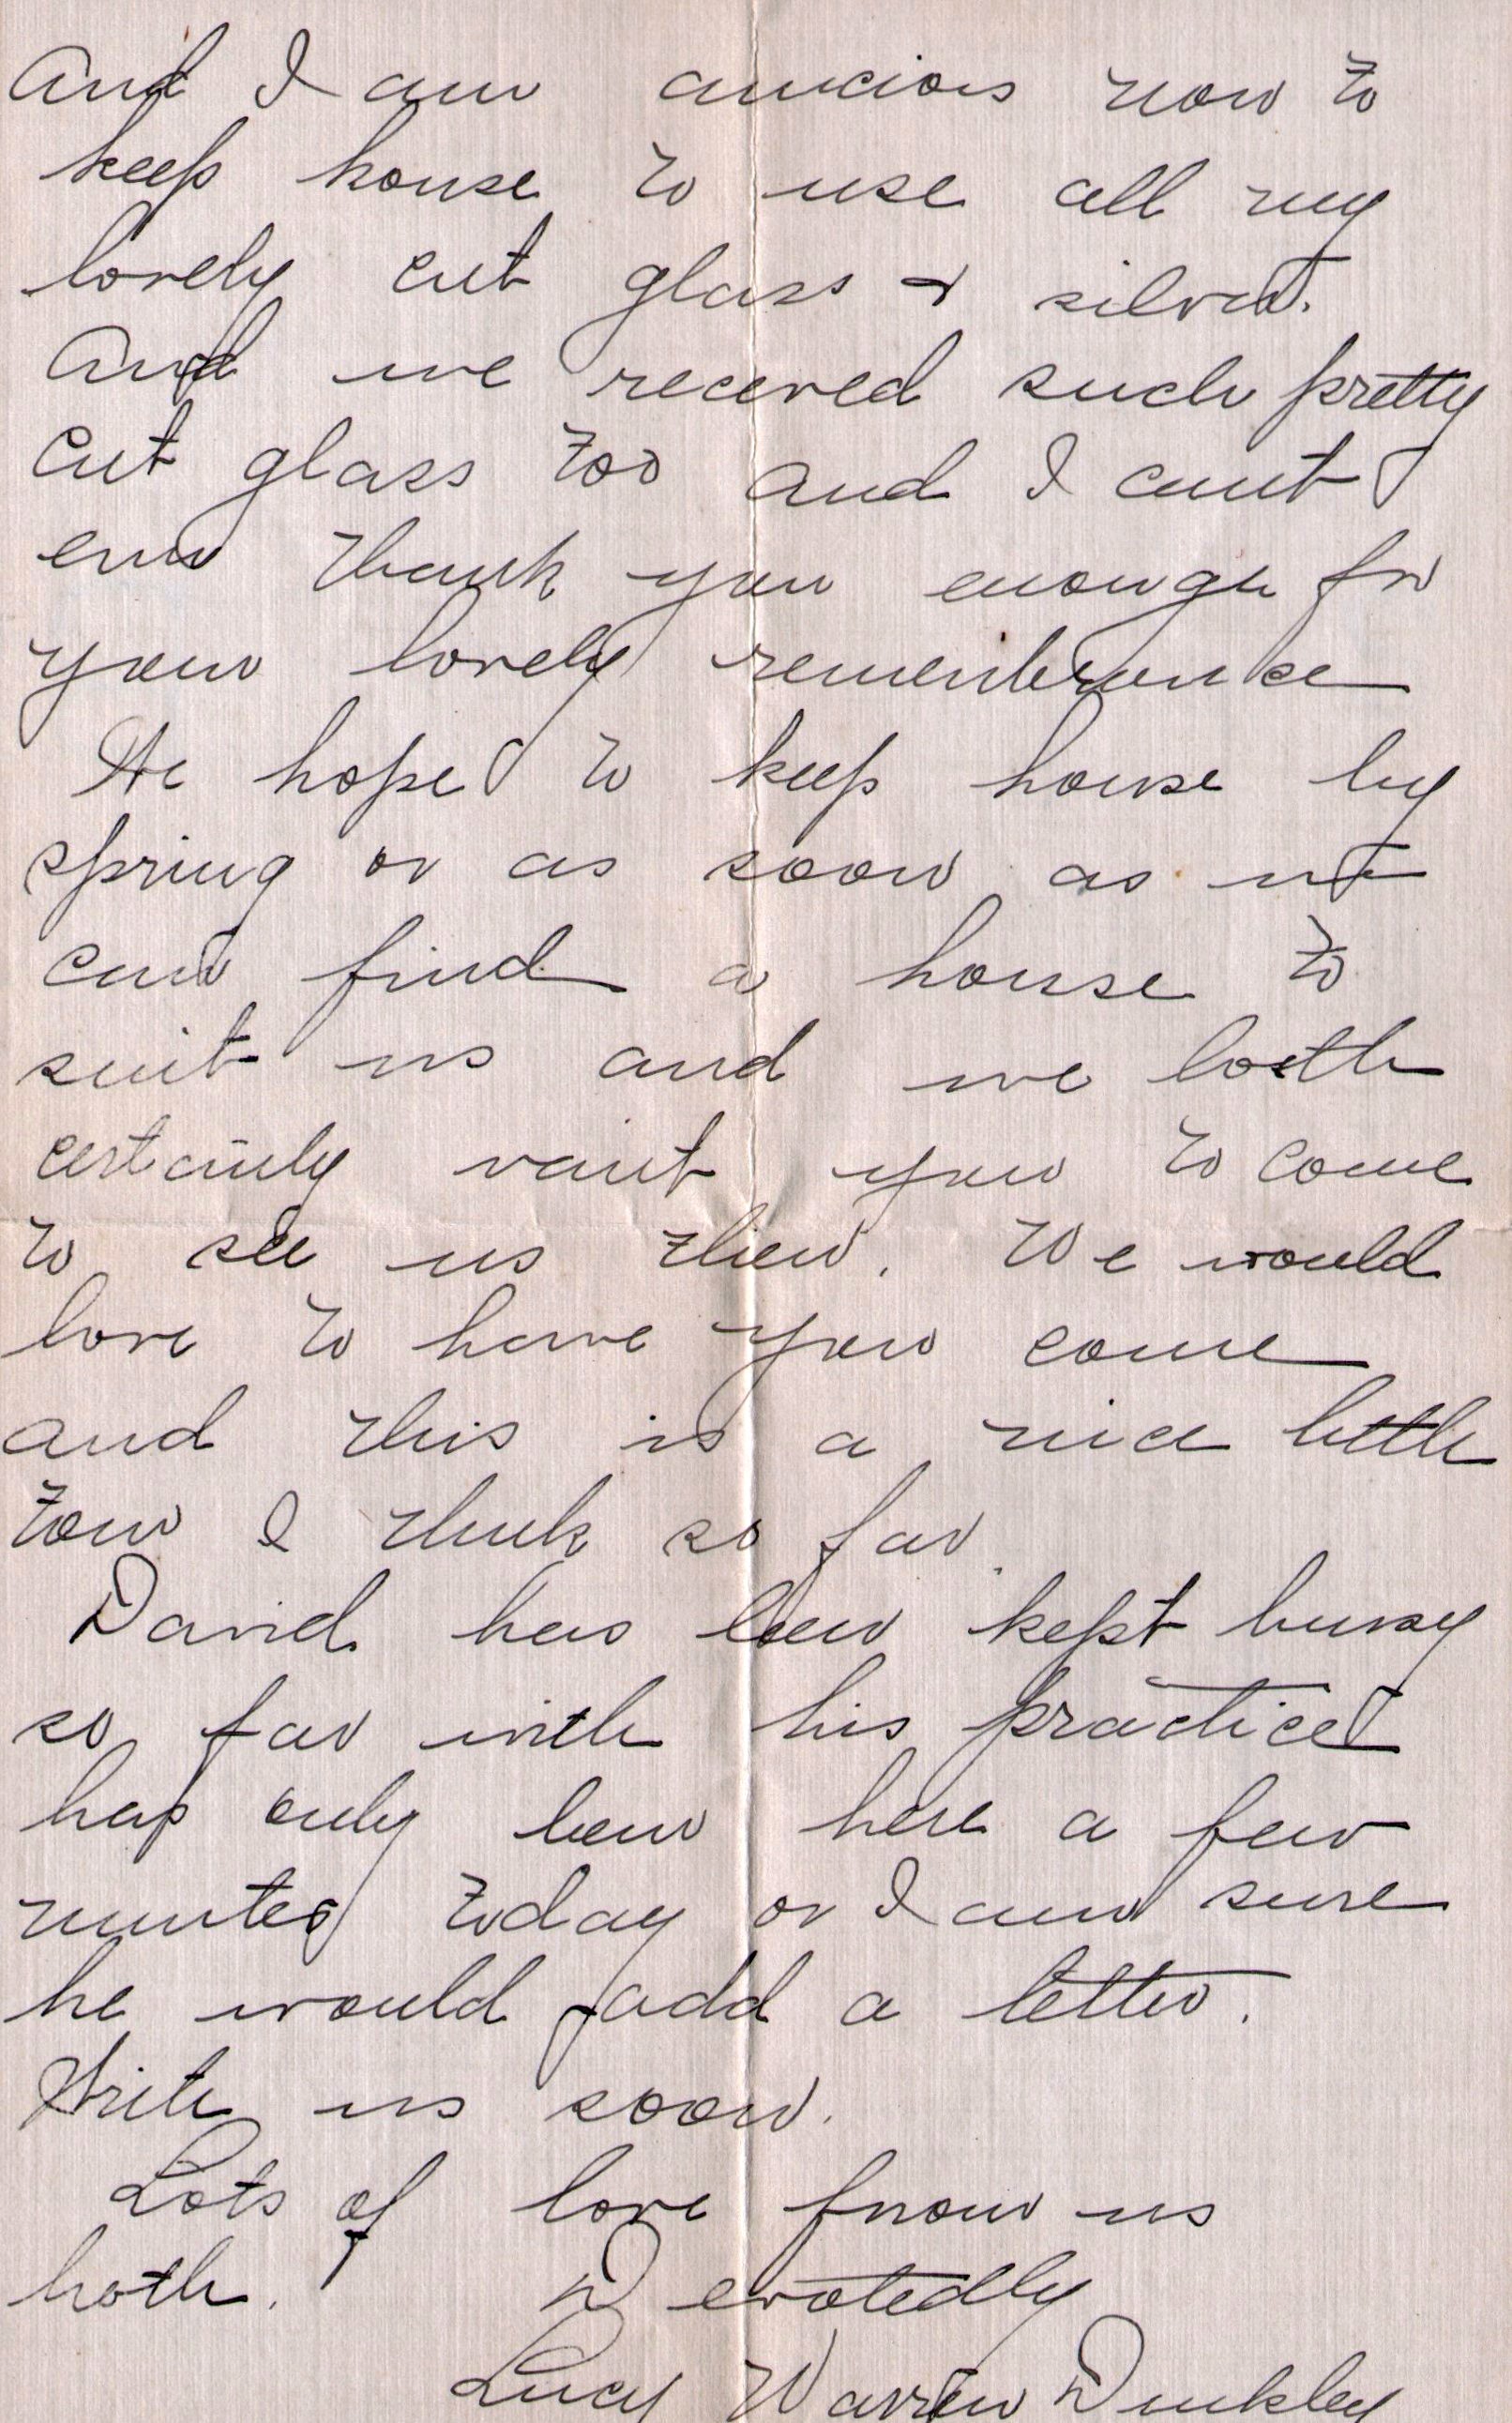 And I am ancious now to
keep house to use all my
lovely cut glass & silver.
And we receved such pretty
cut glass too and I cant
ever thank you enough for
your lovely remembrance
We hope to keep house by
spring or as soon as we
can find a house to
suit us and we both
certainly want you to come
to see us then. We would
love to have you come
and this is a nice little
town I think so far.
David has been kept bussy
so far with his practice
has only been here a few
minutes today or I am sure
he would add a letter.
Write us soon.
Lots of love from us
both. Devotedly
Lucy Warren Dunkley